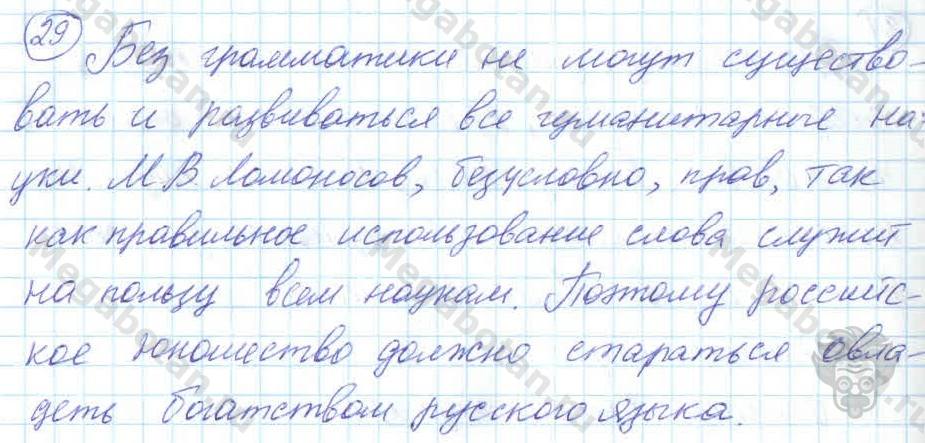 29 Без грамматики не могут существо-
вать и развиваться все гуманитарные на-
уки. М.В. Ломоносов, безусловно, прав, так
как правильное использование слова служит
на пользу всем наукам. Поэтому российс-
кое юношество должно стараться овла-
деть богатством русского языка.